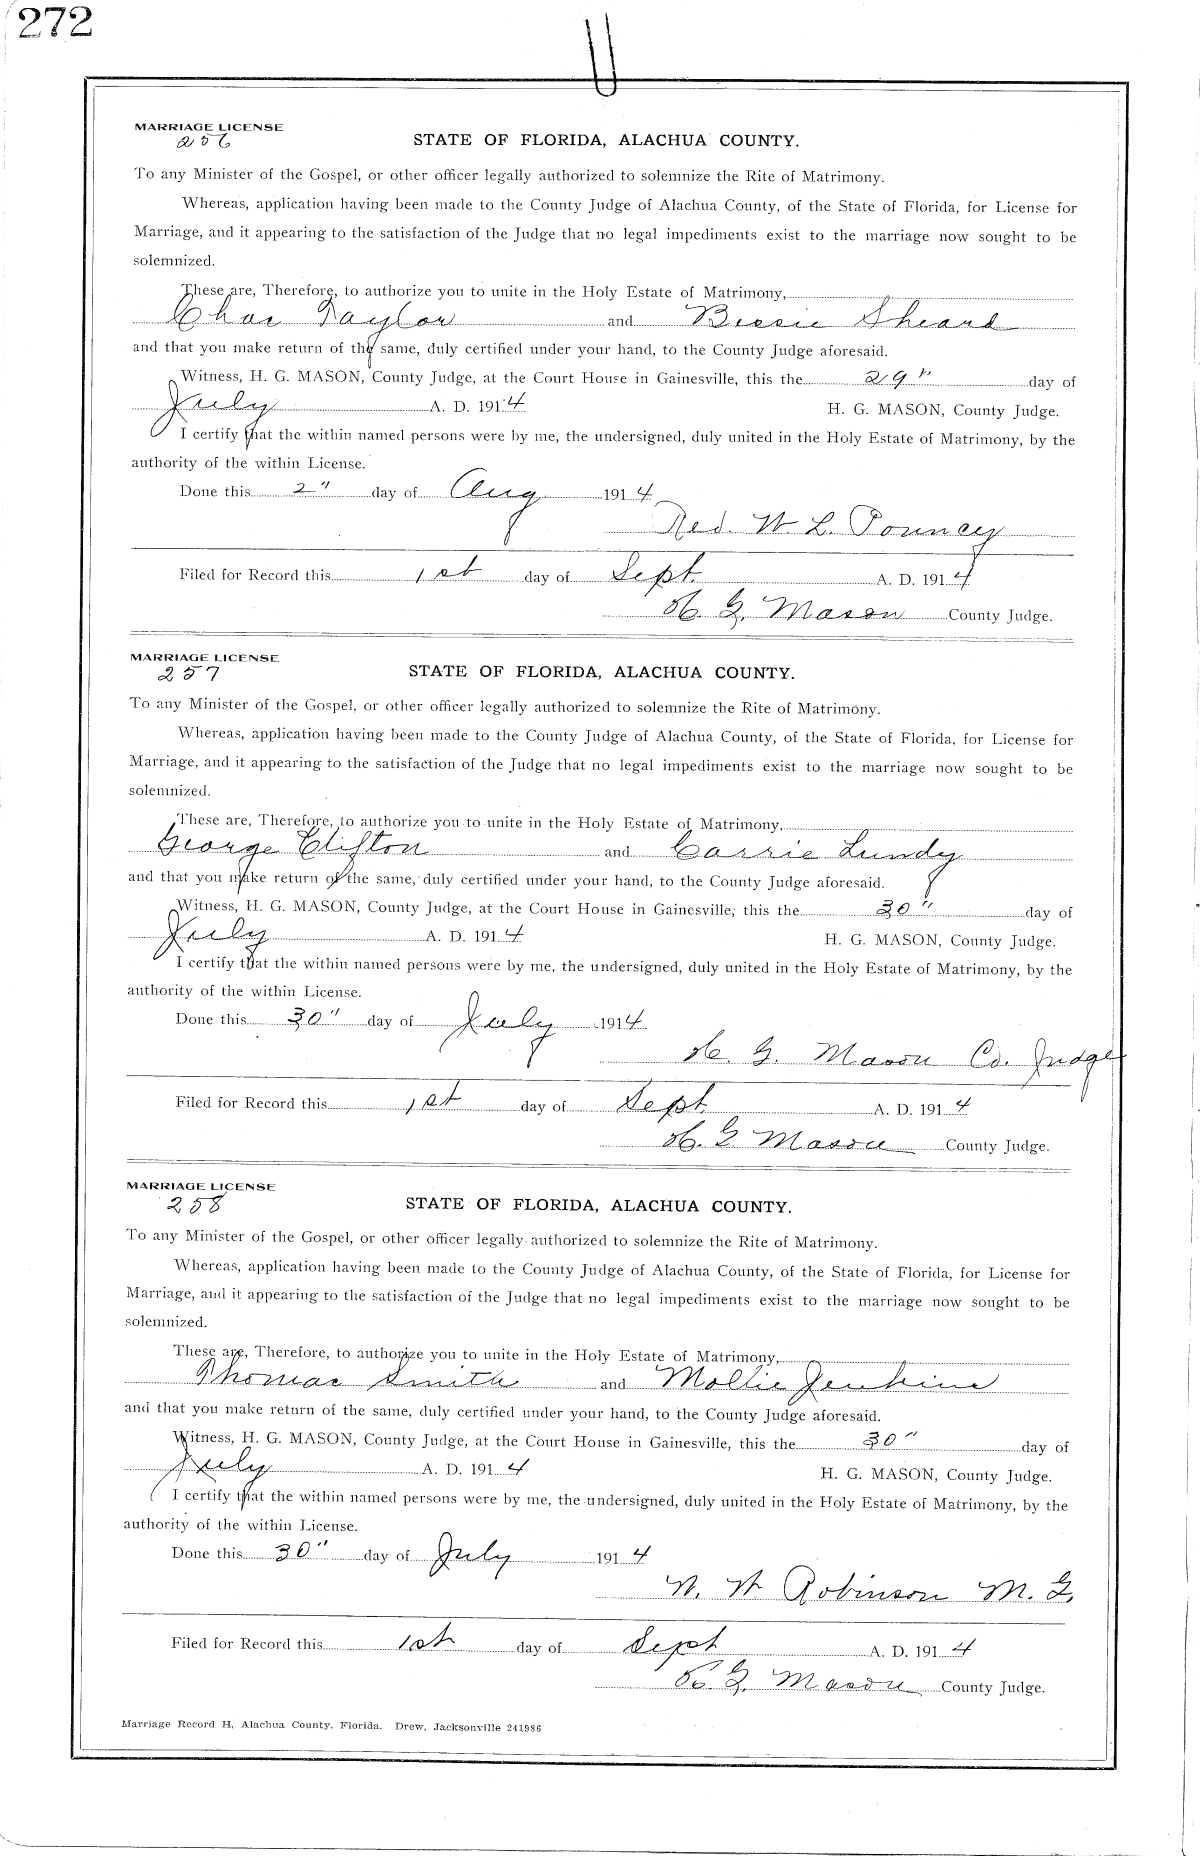 272
MARRIAGE LICENSE
256
STATE OF FLORIDA, ALACHUA COUNTY.
To any Minister of the Gospel, or other officer legally authorized to solemnize the Rite of Matrimony.
Whereas, application having been made to the County Judge of Alachua County, of the State of Florida, for License for
Marriage, and it appearing to the satisfaction of the Judge that no legal impediments exist to the marriage now sought to be
solemnized.
These are, Therefore, to authorize you to unite in the Holy Estate of Matrimony,
Chas Taylor and Bessie Sheard
and that you make return of the same, duly certified under your hand, to the County Judge aforesaid.
Witness, H. G. MASON, County Judge, at the Court House in Gainesville, this the 29" day of
July A. D. 1914 H. G. MASON, County Judge.
I certify that the within named persons were by me, the undersigned, duly united in the Holy Estate of Matrimony, by the
authority of the within License.
Done this 2" day of Aug 1914
W. L. Pouncey
Filed for Record this 1st day of Sept. A. D. 1914
H. G. Mason County Judge.
MARRIAGE LICENSE
257
STATE OF FLORIDA, ALACHUA COUNTY.
To any Minister of the Gospel, or other officer legally authorized to solemnize the Rite of Matrimony.
Whereas, application having been made to the County Judge of Alachua County, of the State of Florida, for License for
Marriage, and it appearing to the satisfaction of the Judge that no legal impediments exist to the marriage now sought to be
solemnized.
These are, Therefore, to authorize you to unite in the Holy Estate of Matrimony,
George Clifton and Carrie Lundy
and that you make return of the same, duly certified under your hand, to the County Judge aforesaid.
Witness, H. G. MASON, County Judge, at the Court House in Gainesville, this the 30" day of
July A. D. 1914 H. G. MASON, County Judge.
I certify that the within named persons were by me, the undersigned, duly united in the Holy Estate of Matrimony, by the
authority of the within License.
Done this 30" day of July 1914
H. G. Mason Co. Judge
Filed for Record this 1st day of Sept. A. D. 1914
H. G Mason County Judge.
MARRIAGE LICENSE
258
STATE OF FLORIDA, ALACHUA COUNTY.
To any Minister of the Gospel, or other officer legally authorized to solemnize the Rite of Matrimony.
Whereas, application having been made to the County Judge of Alachua County, of the State of Florida, for License for
Marriage, and it appearing to the satisfaction of the Judge that no legal impediments exist to the marriage now sought to be
solemnized.
These are, Therefore, to authorize you to unite in the Holy Estate of Matrimony,
Thomas Smith and Mollie Jenkins
and that you make return of the same, duly certified under your hand, to the County Judge aforesaid.
Witness, H. G. MASON, County Judge, at the Court House in Gainesville, this the 30" day of
July A. D. 1914 H. G. MASON, County Judge.
I certify that the within named persons were by me, the undersigned, duly united in the Holy Estate of Matrimony, by the
authority of the within License.
Done this 30" day of July 1914
W. Robinson M. G.
Filed for Record this 1st day of Sept A. D. 1914
H. G. Mason County Judge.
Marriage Record H, Alachua County, Florida. Drew, Jacksonville 241986